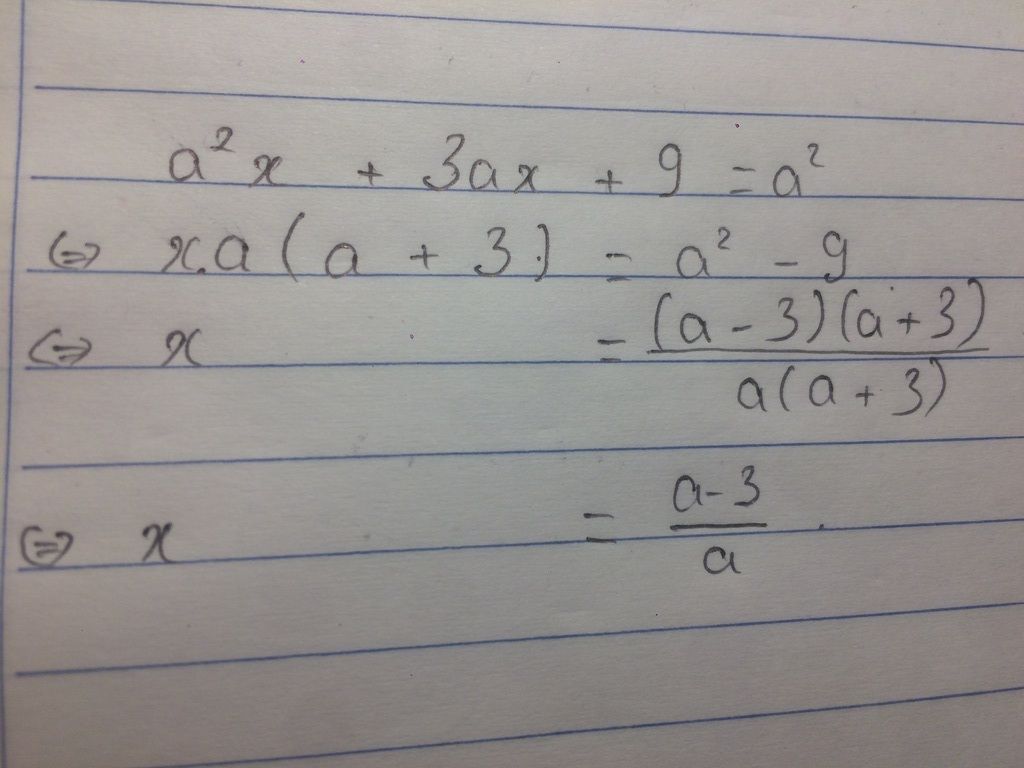 a²x + 3ax + 9 = a²
⇔ x.a(a + 3) = a² - 9
⇔ x = (a - 3)(a + 3) / a(a + 3)
⇔ x = a - 3 / a